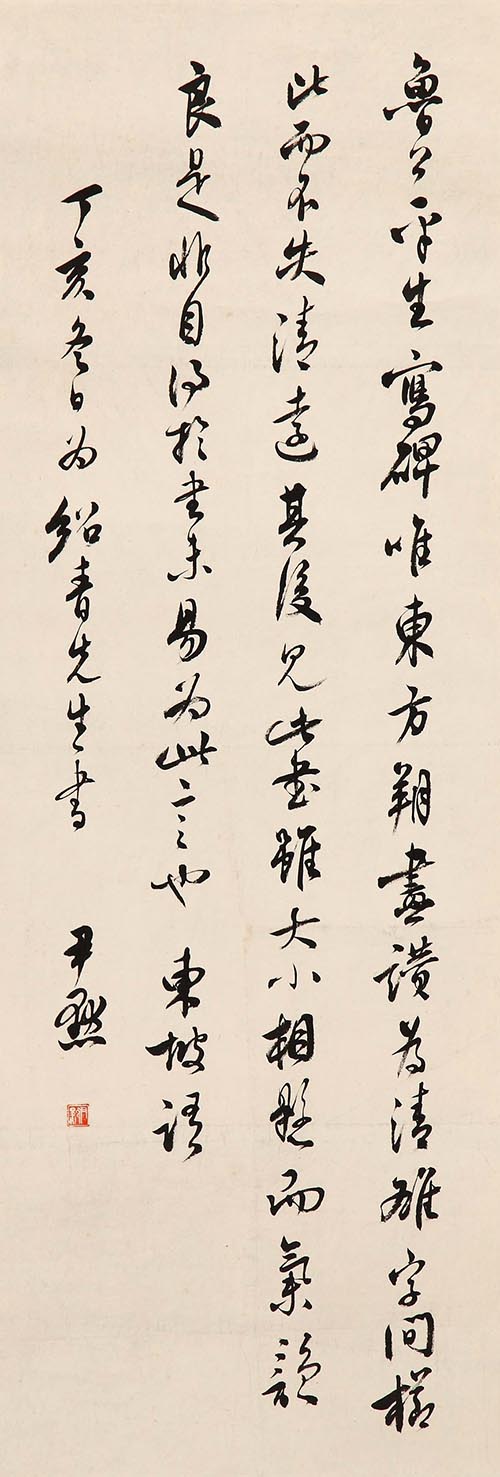 魯公平生寫碑唯東方朔畫讚為清雄字間櫛
比而不失清遠其後見此書雖大小相懸而氣韻
良是非自得於書未易為此言也 東坡語
丁亥冬日為 紹青先生書 尹默